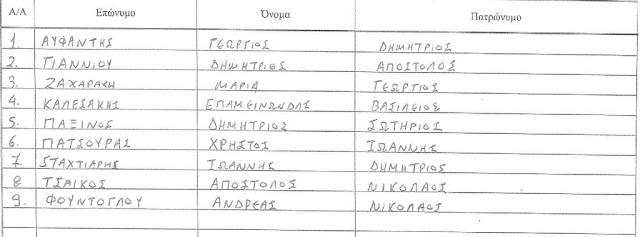 Α/Α Επώνυμο Όνομα Πατρώνυμο
1. ΑΥΦΑΝΤΗΣ ΓΕΩΡΓΙΟΣ ΔΗΜΗΤΡΙΟΣ
2. ΓΙΑΝΝΙΟΥ ΔΗΜΗΤΡΙΟΣ ΑΠΟΣΤΟΛΟΣ
3. ΖΑΧΑΡΑΚΗ ΜΑΡΙΑ ΓΕΩΡΓΙΟΣ
4. ΚΑΛΕΣΑΚΗΣ ΕΠΑΜΕΙΝΩΝΔΑΣ ΒΑΣΙΛΕΙΟΣ
5. ΠΑΞΙΝΟΣ ΔΗΜΗΤΡΙΟΣ ΣΩΤΗΡΙΟΣ
6. ΠΑΤΣΟΥΡΑΣ ΧΡΗΣΤΟΣ ΙΩΑΝΝΗΣ
7. ΣΤΑΧΤΙΑΡΗΣ ΙΩΑΝΝΗΣ ΔΗΜΗΤΡΙΟΣ
8. ΤΣΑΙΚΟΣ ΑΠΟΣΤΟΛΟΣ ΝΙΚΟΛΑΟΣ
9. ΦΟΥΝΤΟΓΛΟΥ ΑΝΔΡΕΑΣ ΝΙΚΟΛΑΟΣ